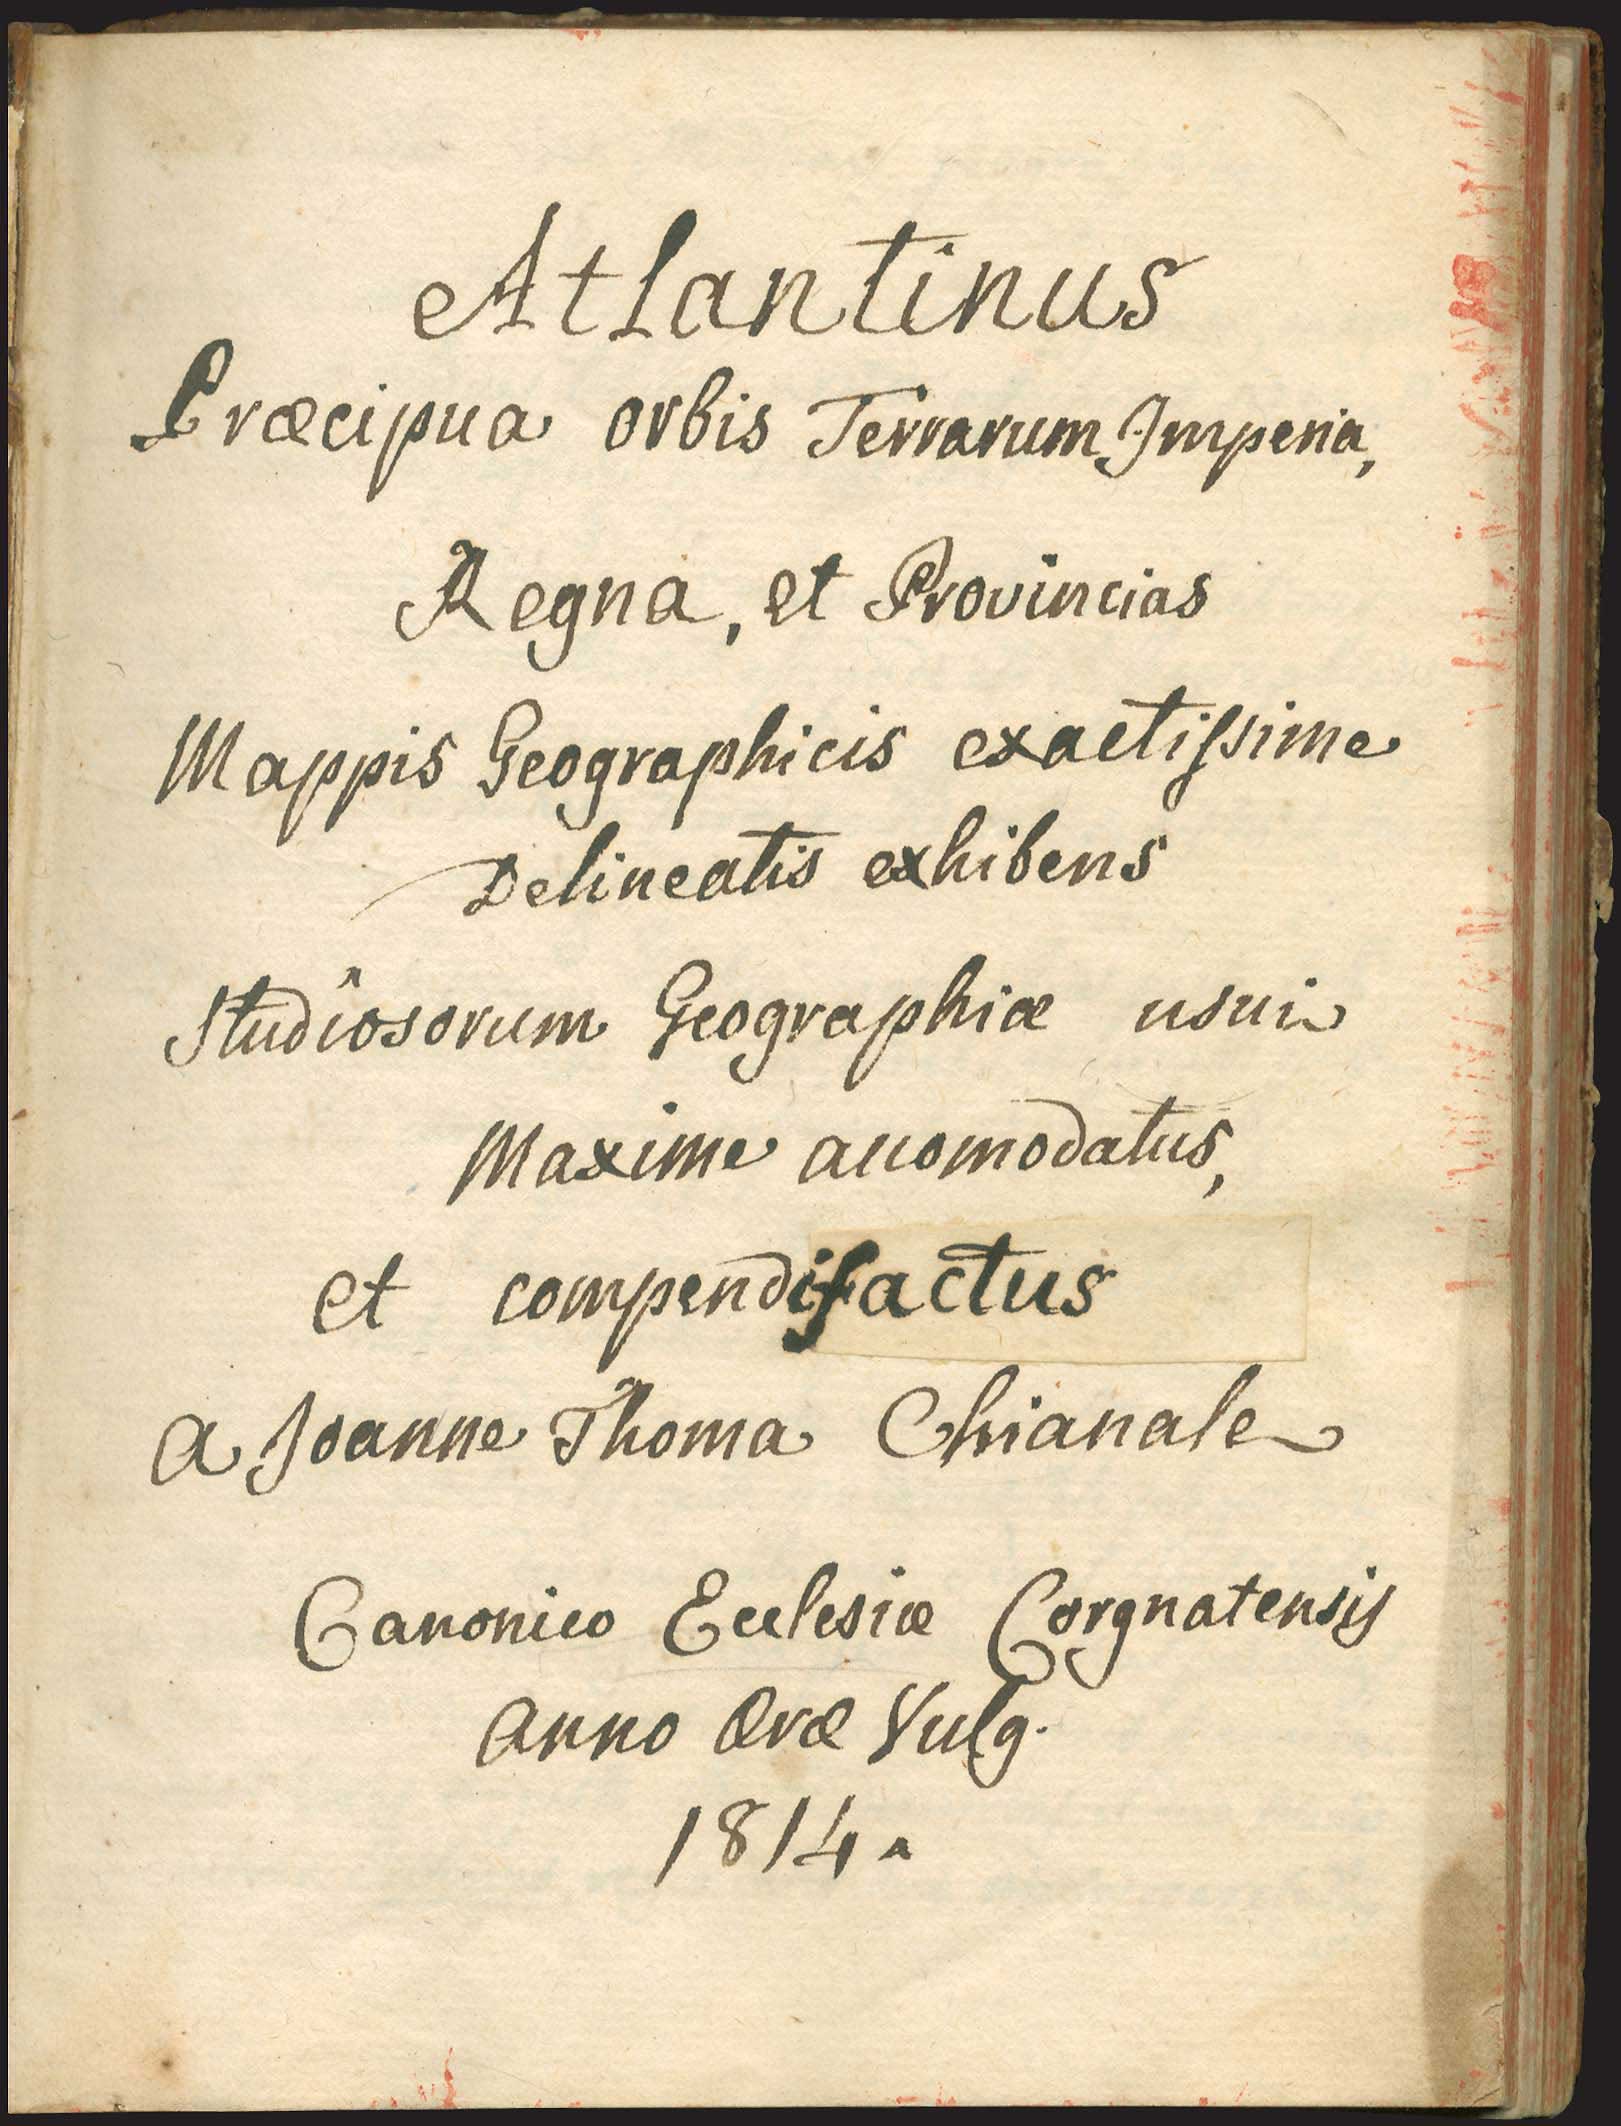 Atlantinus
Præcipua orbis Terrarum Imperia,
Regna, et Provincias
Mappis Geographicis exactissime
Delineatis exhibens
Studiosorum Geographiæ usui
Maxime accomodatus,
et compendifactus
a Joanne Thoma Chianale
Canonico Ecclesiæ Corgnatensis
anno æræ Vulg.
1814.